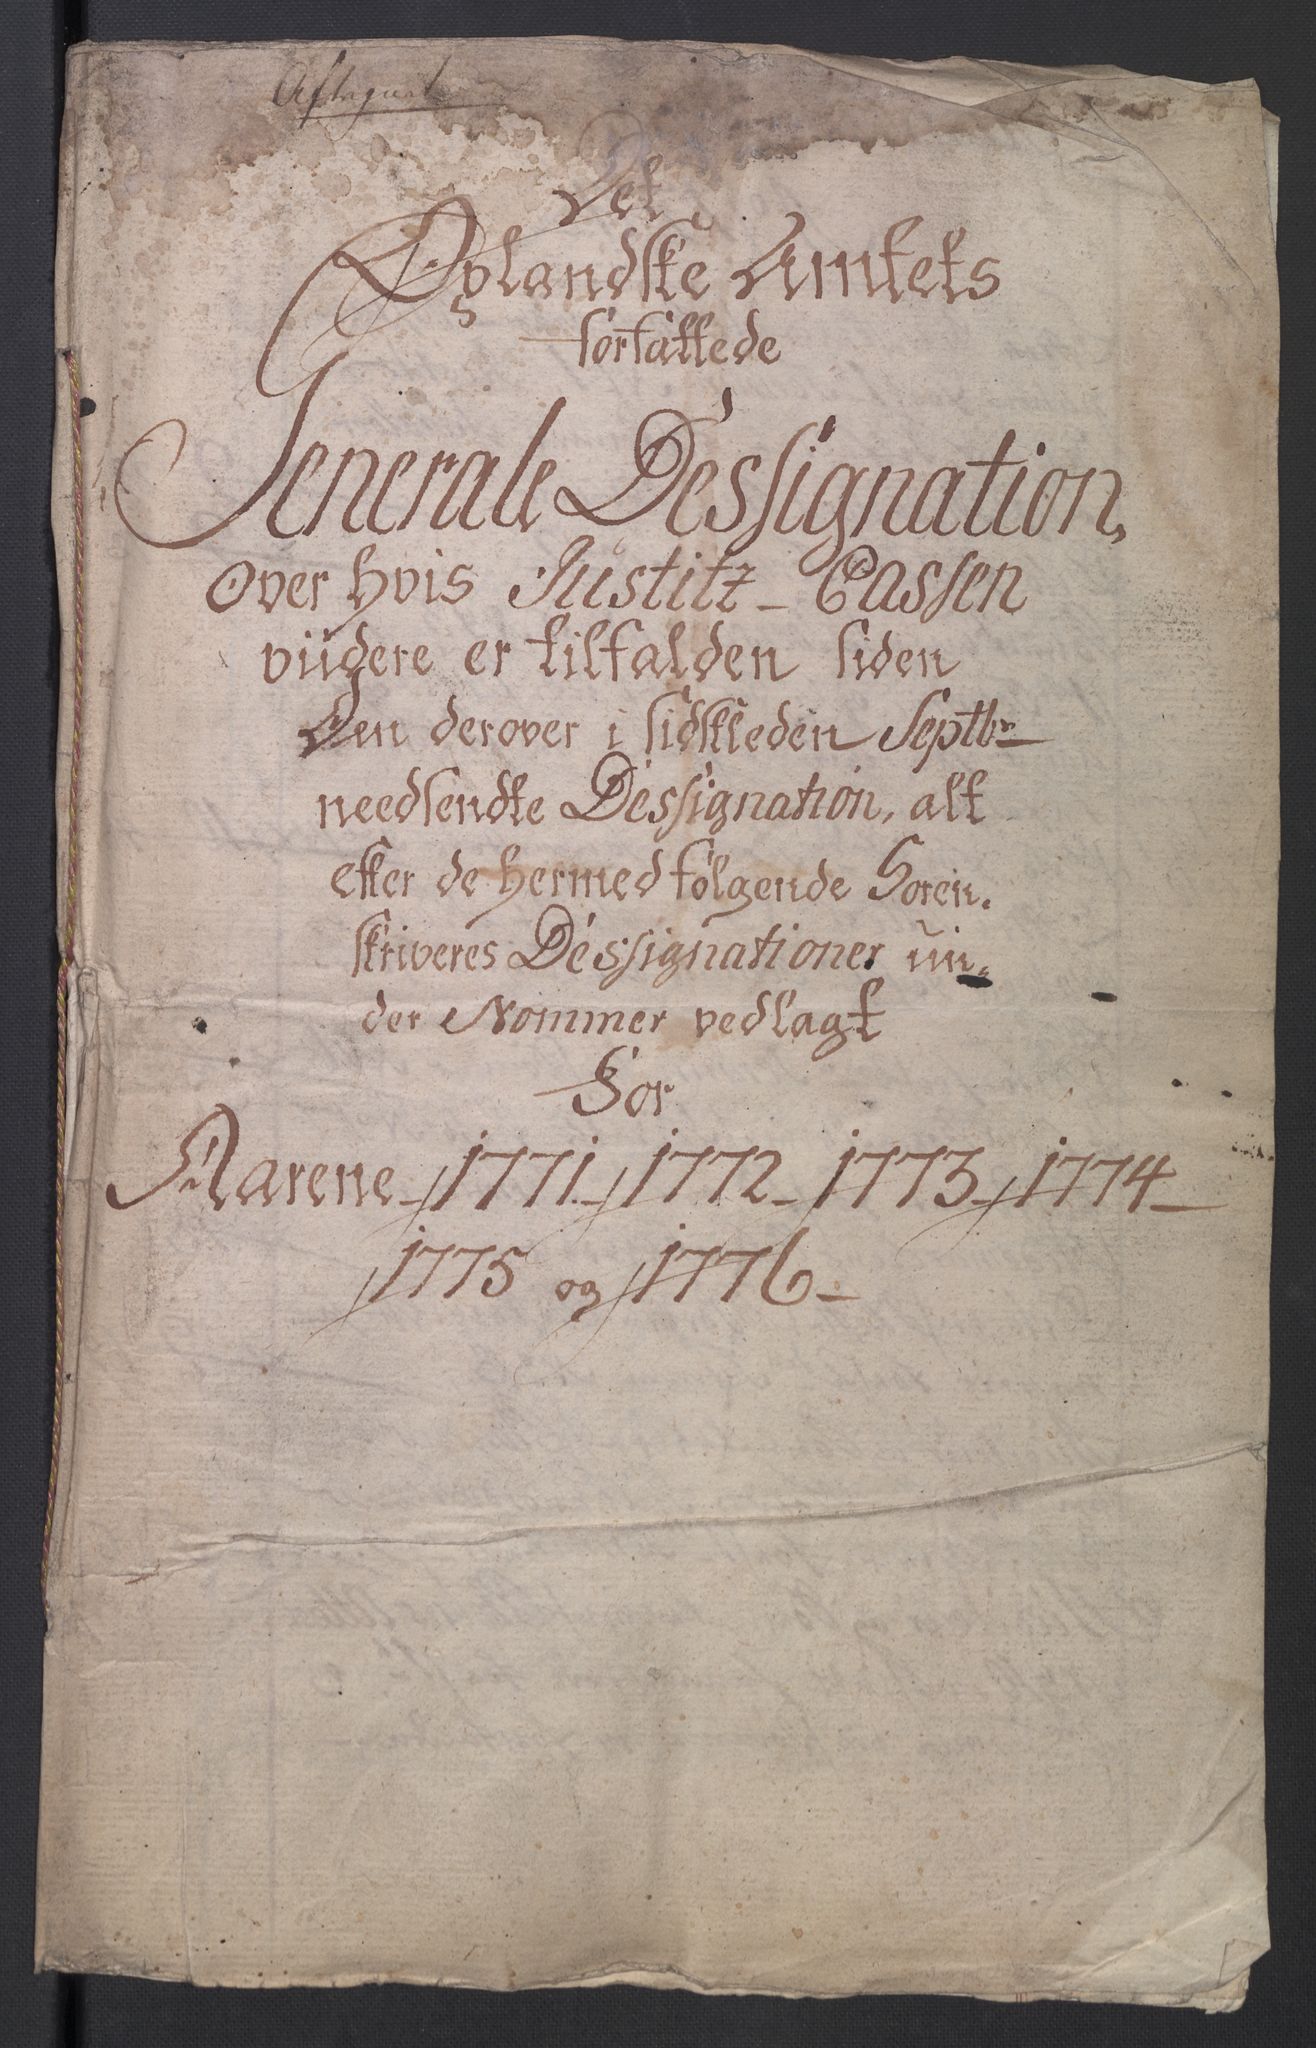 Aftegnet
Det
Oplandske Amtets
forfattede
Generale Dessignation,
over hvis Justitz-Cassen
viidere er tilfalden siden
den derover i sidstleden Septbr
needsendte Dessignation, alt
efter de hermed følgende Soren.
skriveres Dessignationer un,
der Nommer vedlagt
For
Aarene 1771. 1772 - 1773 1774 -
1775 og 1776 -